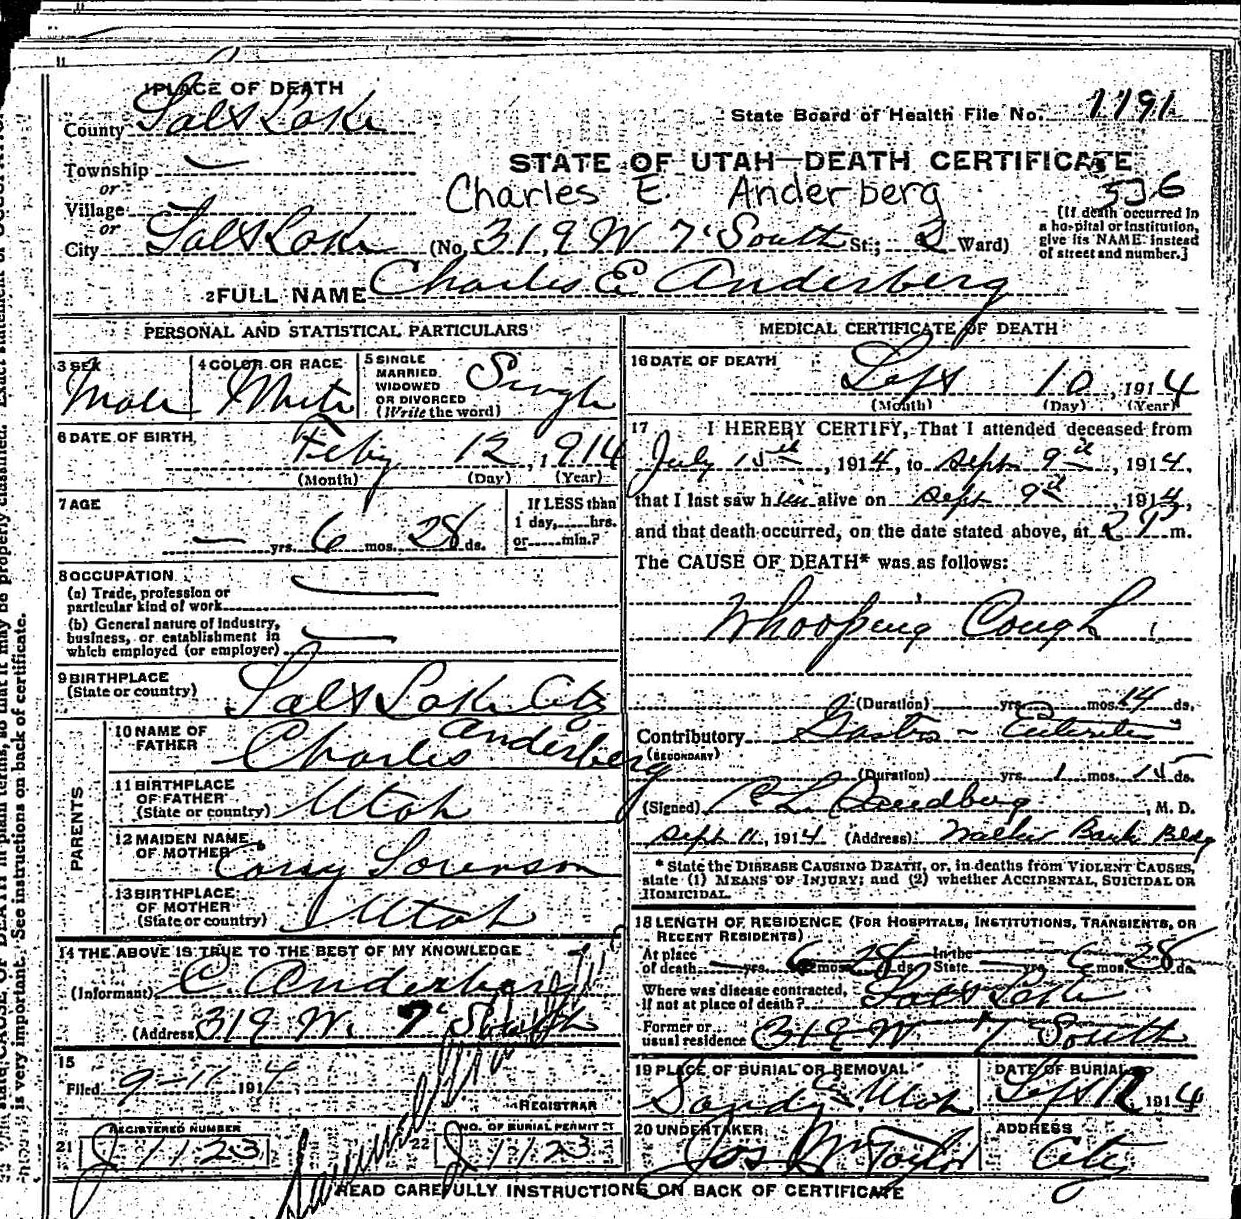 1 PLACE OF DEATH
County Salt Lake
State Board of Health File No. 1191
Township —
or
STATE OF UTAH—DEATH CERTIFICATE
Village
Charles E. Anderberg 536
or
City Salt Lake (No. 319 W 7' South St.; 2 Ward)
[If death occurred in a hospital or institution, give its NAME instead of street and number.]
2 FULL NAME Charles E Anderberg
PERSONAL AND STATISTICAL PARTICULARS
3 SEX Male
4 COLOR OR RACE White
5 SINGLE MARRIED, WIDOWED OR DIVORCED (Write the word) Single
6 DATE OF BIRTH Feby 12, 1914
(Month) (Day) (Year)
7 AGE
— yrs. 6 mos. 28 ds.
If LESS than 1 day, hrs. or min.?
8 OCCUPATION
(a) Trade, profession or particular kind of work
(b) General nature of industry, business, or establishment in which employed (or employer)
9 BIRTHPLACE
(State or country) Salt Lake City
PARENTS
10 NAME OF FATHER Charles Anderberg
11 BIRTHPLACE OF FATHER (State or country) Utah
12 MAIDEN NAME OF MOTHER Sorenson
13 BIRTHPLACE OF MOTHER (State or country) Utah
14 THE ABOVE IS TRUE TO THE BEST OF MY KNOWLEDGE
(Informant) C. Anderberg
(Address) 319 W. 7' South
15
Filed 9-11 1914
REGISTRAR
21 REGISTERED NUMBER J 1123
22 NO. OF BURIAL PERMIT J 1123
MEDICAL CERTIFICATE OF DEATH
16 DATE OF DEATH
Sept 10, 1914
(Month) (Day) (Year)
17 I HEREBY CERTIFY, That I attended deceased from
July 15th, 1914, to Sept 9th, 1914,
that I last saw him alive on Sept 9th, 1914,
and that death occurred, on the date stated above, at 2 P m.
The CAUSE OF DEATH* was as follows:
Whooping Cough
(Duration) yrs. mos. 14 ds.
Contributory Gastro-Enteritis
(SECONDARY)
(Duration) yrs. 1 mos. 15 ds.
(Signed) M. D.
Sept 11, 1914 (Address) Walker Bank Bldg
* State the DISEASE CAUSING DEATH, or, in deaths from VIOLENT CAUSES, state (1) MEANS OF INJURY; and (2) whether ACCIDENTAL, SUICIDAL OR HOMICIDAL.
18 LENGTH OF RESIDENCE (FOR HOSPITALS, INSTITUTIONS, TRANSIENTS, OR RECENT RESIDENTS)
At place of death — yrs. 6 mos. 28 ds. In the State — yrs. 6 mos. 28 ds.
Where was disease contracted, if not at place of death? Salt Lake
Former or usual residence 319 W 7 South
19 PLACE OF BURIAL OR REMOVAL Sandy Utah
DATE OF BURIAL Sept 12 1914
20 UNDERTAKER Jos Wm Taylor
ADDRESS City
READ CAREFULLY INSTRUCTIONS ON BACK OF CERTIFICATE
is very important. See instructions on back of certificate.